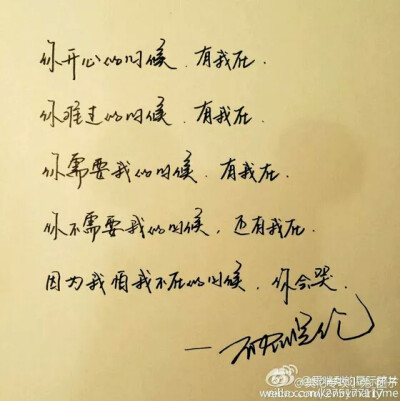 你开心的时候．有我在．
你难过的时候．有我在．
你需要我的时候．有我在．
你不需要我的时候，还有我在．
因为我怕我不在的时候．你会哭．